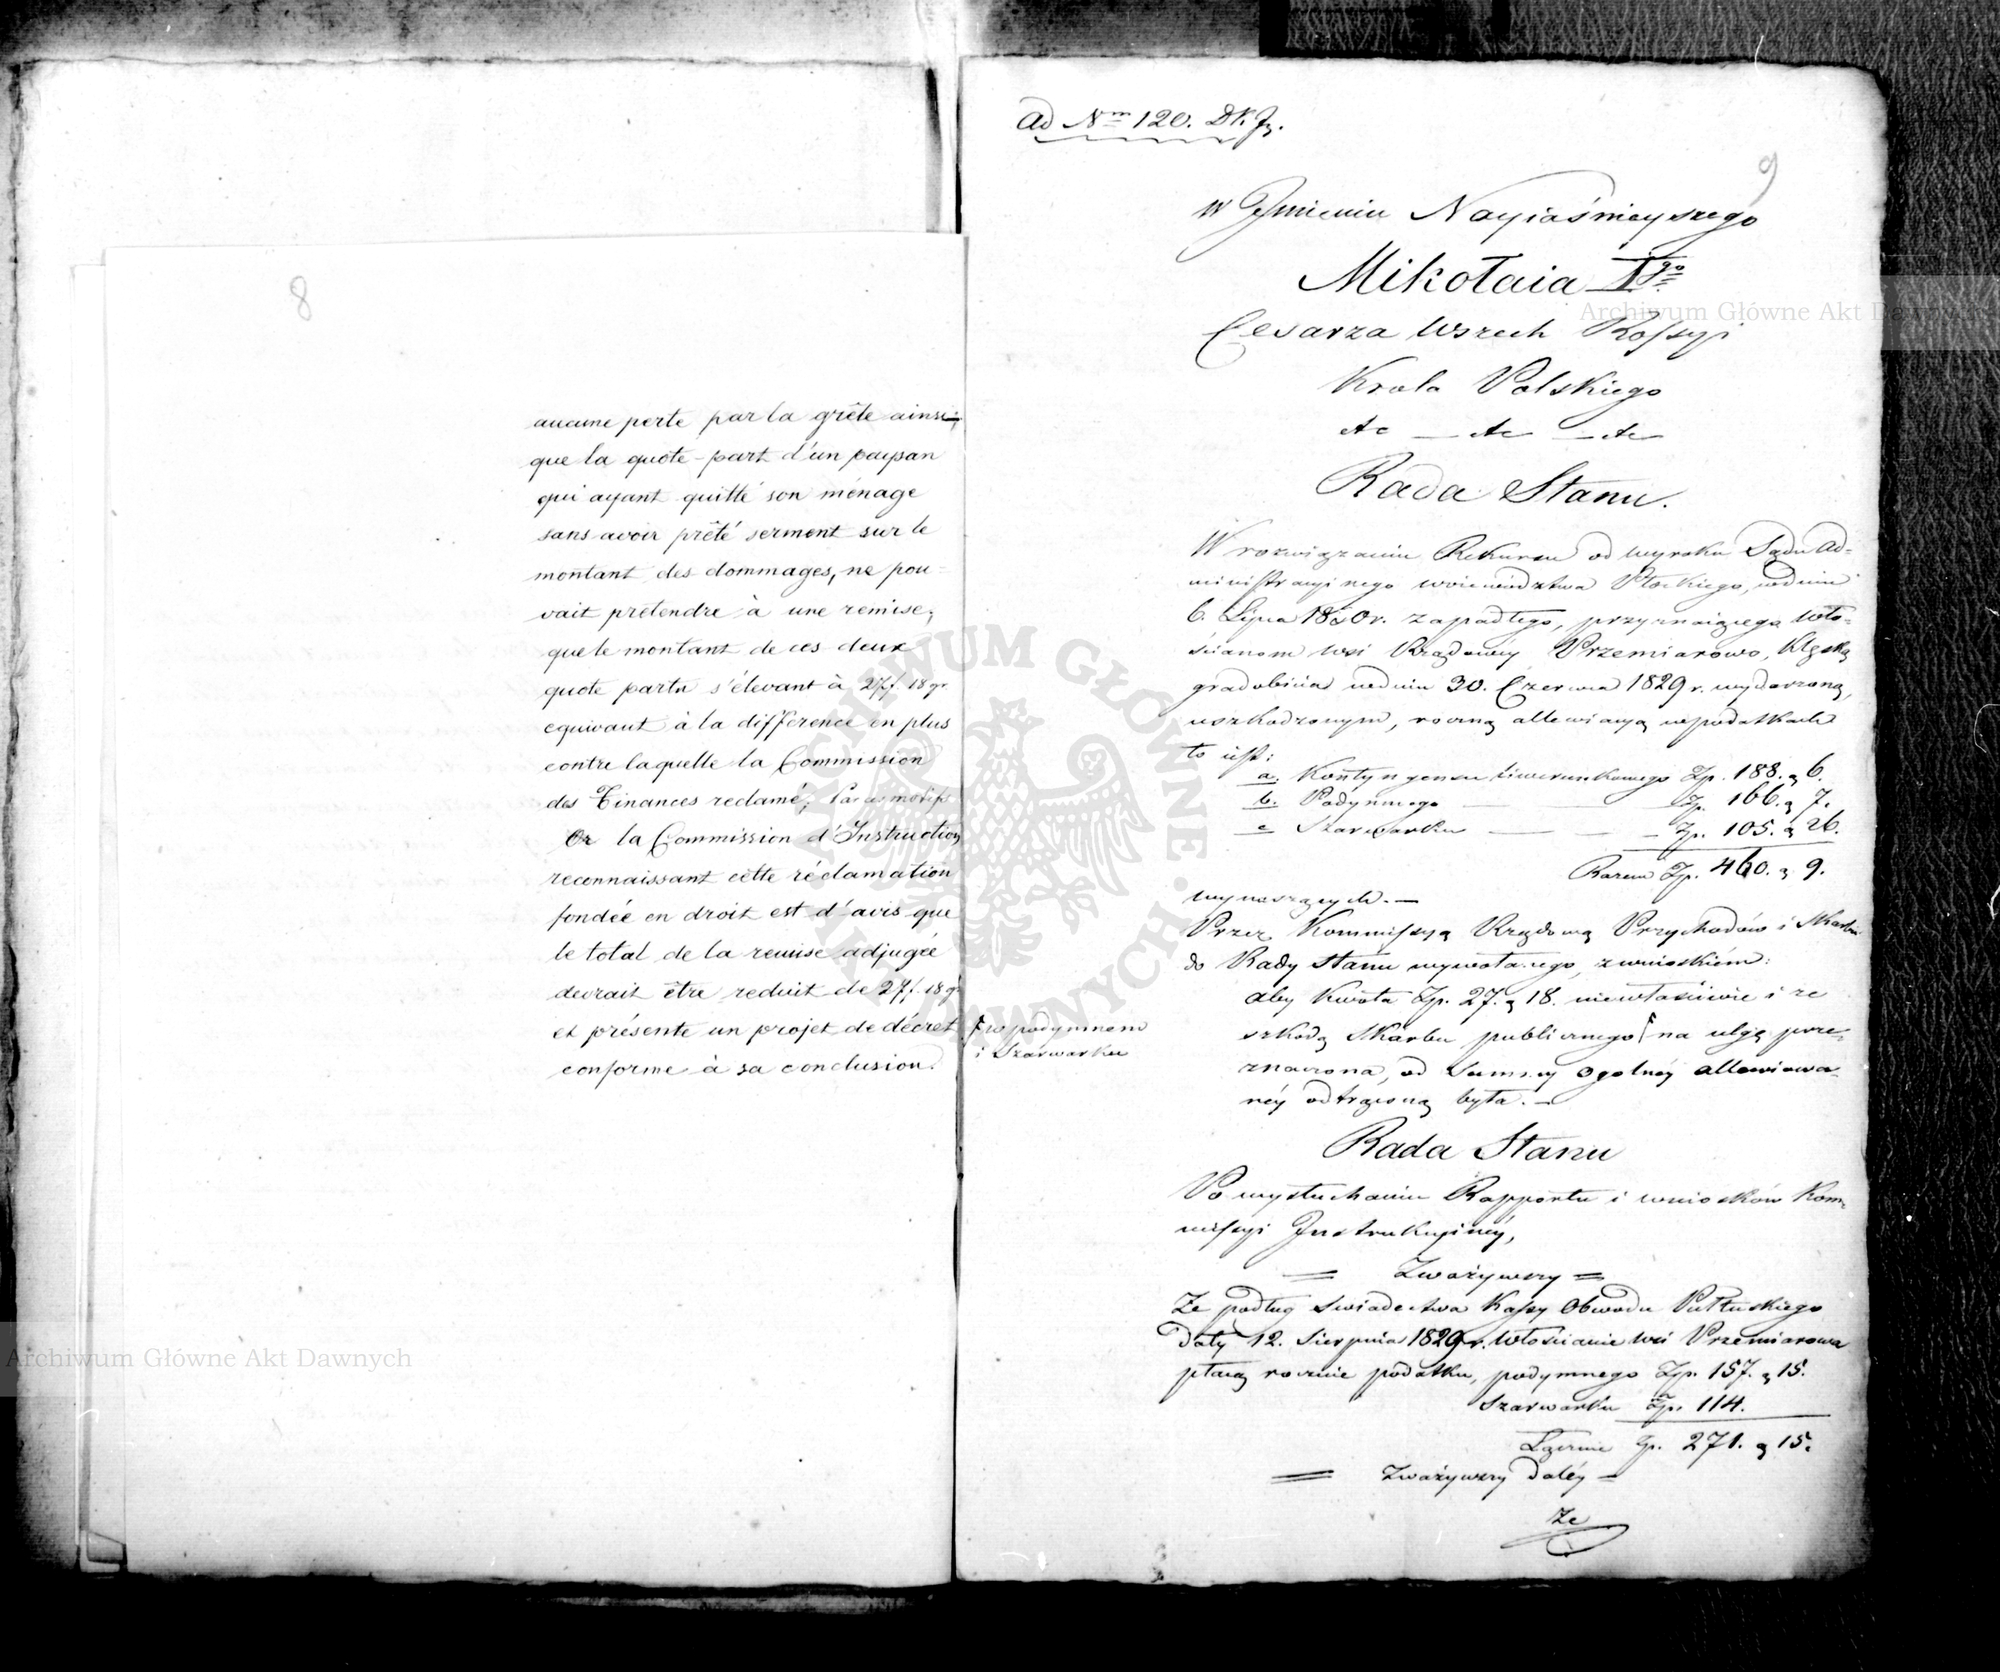 8
aucune perte par la grêle ainsi
que la quote-part d'un paysan
qui ayant quitté son ménage
sans avoir prêté serment sur le
montant des dommages, ne pou-
vait prétendre à une remise;
que le montant de ces deux
quote parts s'élevant à 27 f. 18 gr.
equivaut à la différence en plus
contre laquelle la Commission
des Finances reclamé; Par ces motifs
Or la Commission d'Instruction
reconnaissant cette réclamation
fondée en droit est d'avis que
le total de la remise adjugée
devrait être reduit de 27 f. 18 gr
et présente un projet de décret
conforme à sa conclusion.
Ad Nrm 120. D.K.J.
9
W Jmieniu Nayiaśnieyszego
Mikołaia Igo
Cesarza Wszech Rossyi
Krola Polskiego
etc — etc — etc
Rada Stanu.
W rozwiązaniu Rekursu od wyroku Sądu Ad-
ministracyinego woiewodztwa Płockiego, w dniu
6. Lipca 1830 r. zapadłego, przyznaiącego Wło-
ścianom wsi Rządowey Przemiarowo, Klęską
gradobicia w dniu 30. Czerwca 1829 r. wydarzoną,
uszkodzonym, roczną allewiacyą w podatkach
to iest:
a. Kontyngensu liwerunkowego Zp. 188. g 6.
b. Podymnego — Zp. 166. g 7.
c Szarwarku — Zp. 105. g 26.
Razem Zp. 460. g 9.
wynoszących. —
Przez Kommissyą Rządową Przychodów i Skarbu
do Rady Stanu wywołanego, z wnioskiem:
aby Kwota Zp. 27. g 18. niewłaściwie i ze
szkodą Skarbu publicznego na ulgę prze-
znaczona, od Summy ogolney allewiowa-
ney odtrąconą była. —
w podymnem
i Szarwarku
Rada Stanu
Po wysłuchaniu Rapportu i wniosków Kom-
missyi Instrukcyiney,
= Zważywszy =
Że podług świadectwa Kassy Obwodu Pułtuskiego
Daty 12. Sierpnia 1829 r. Włościanie wsi Przemiarowa
płacą rocznie podatku, podymnego Zp. 157. g 15.
Szarwarku Zp. 114.
Łącznie Zp. 271. g 15.
= Zważywszy daléy =
Że
Archiwum Główne Akt Dawnych
Archiwum Główne Akt Dawnych
ARCHIWUM GŁÓWNE AKT DAWNYCH